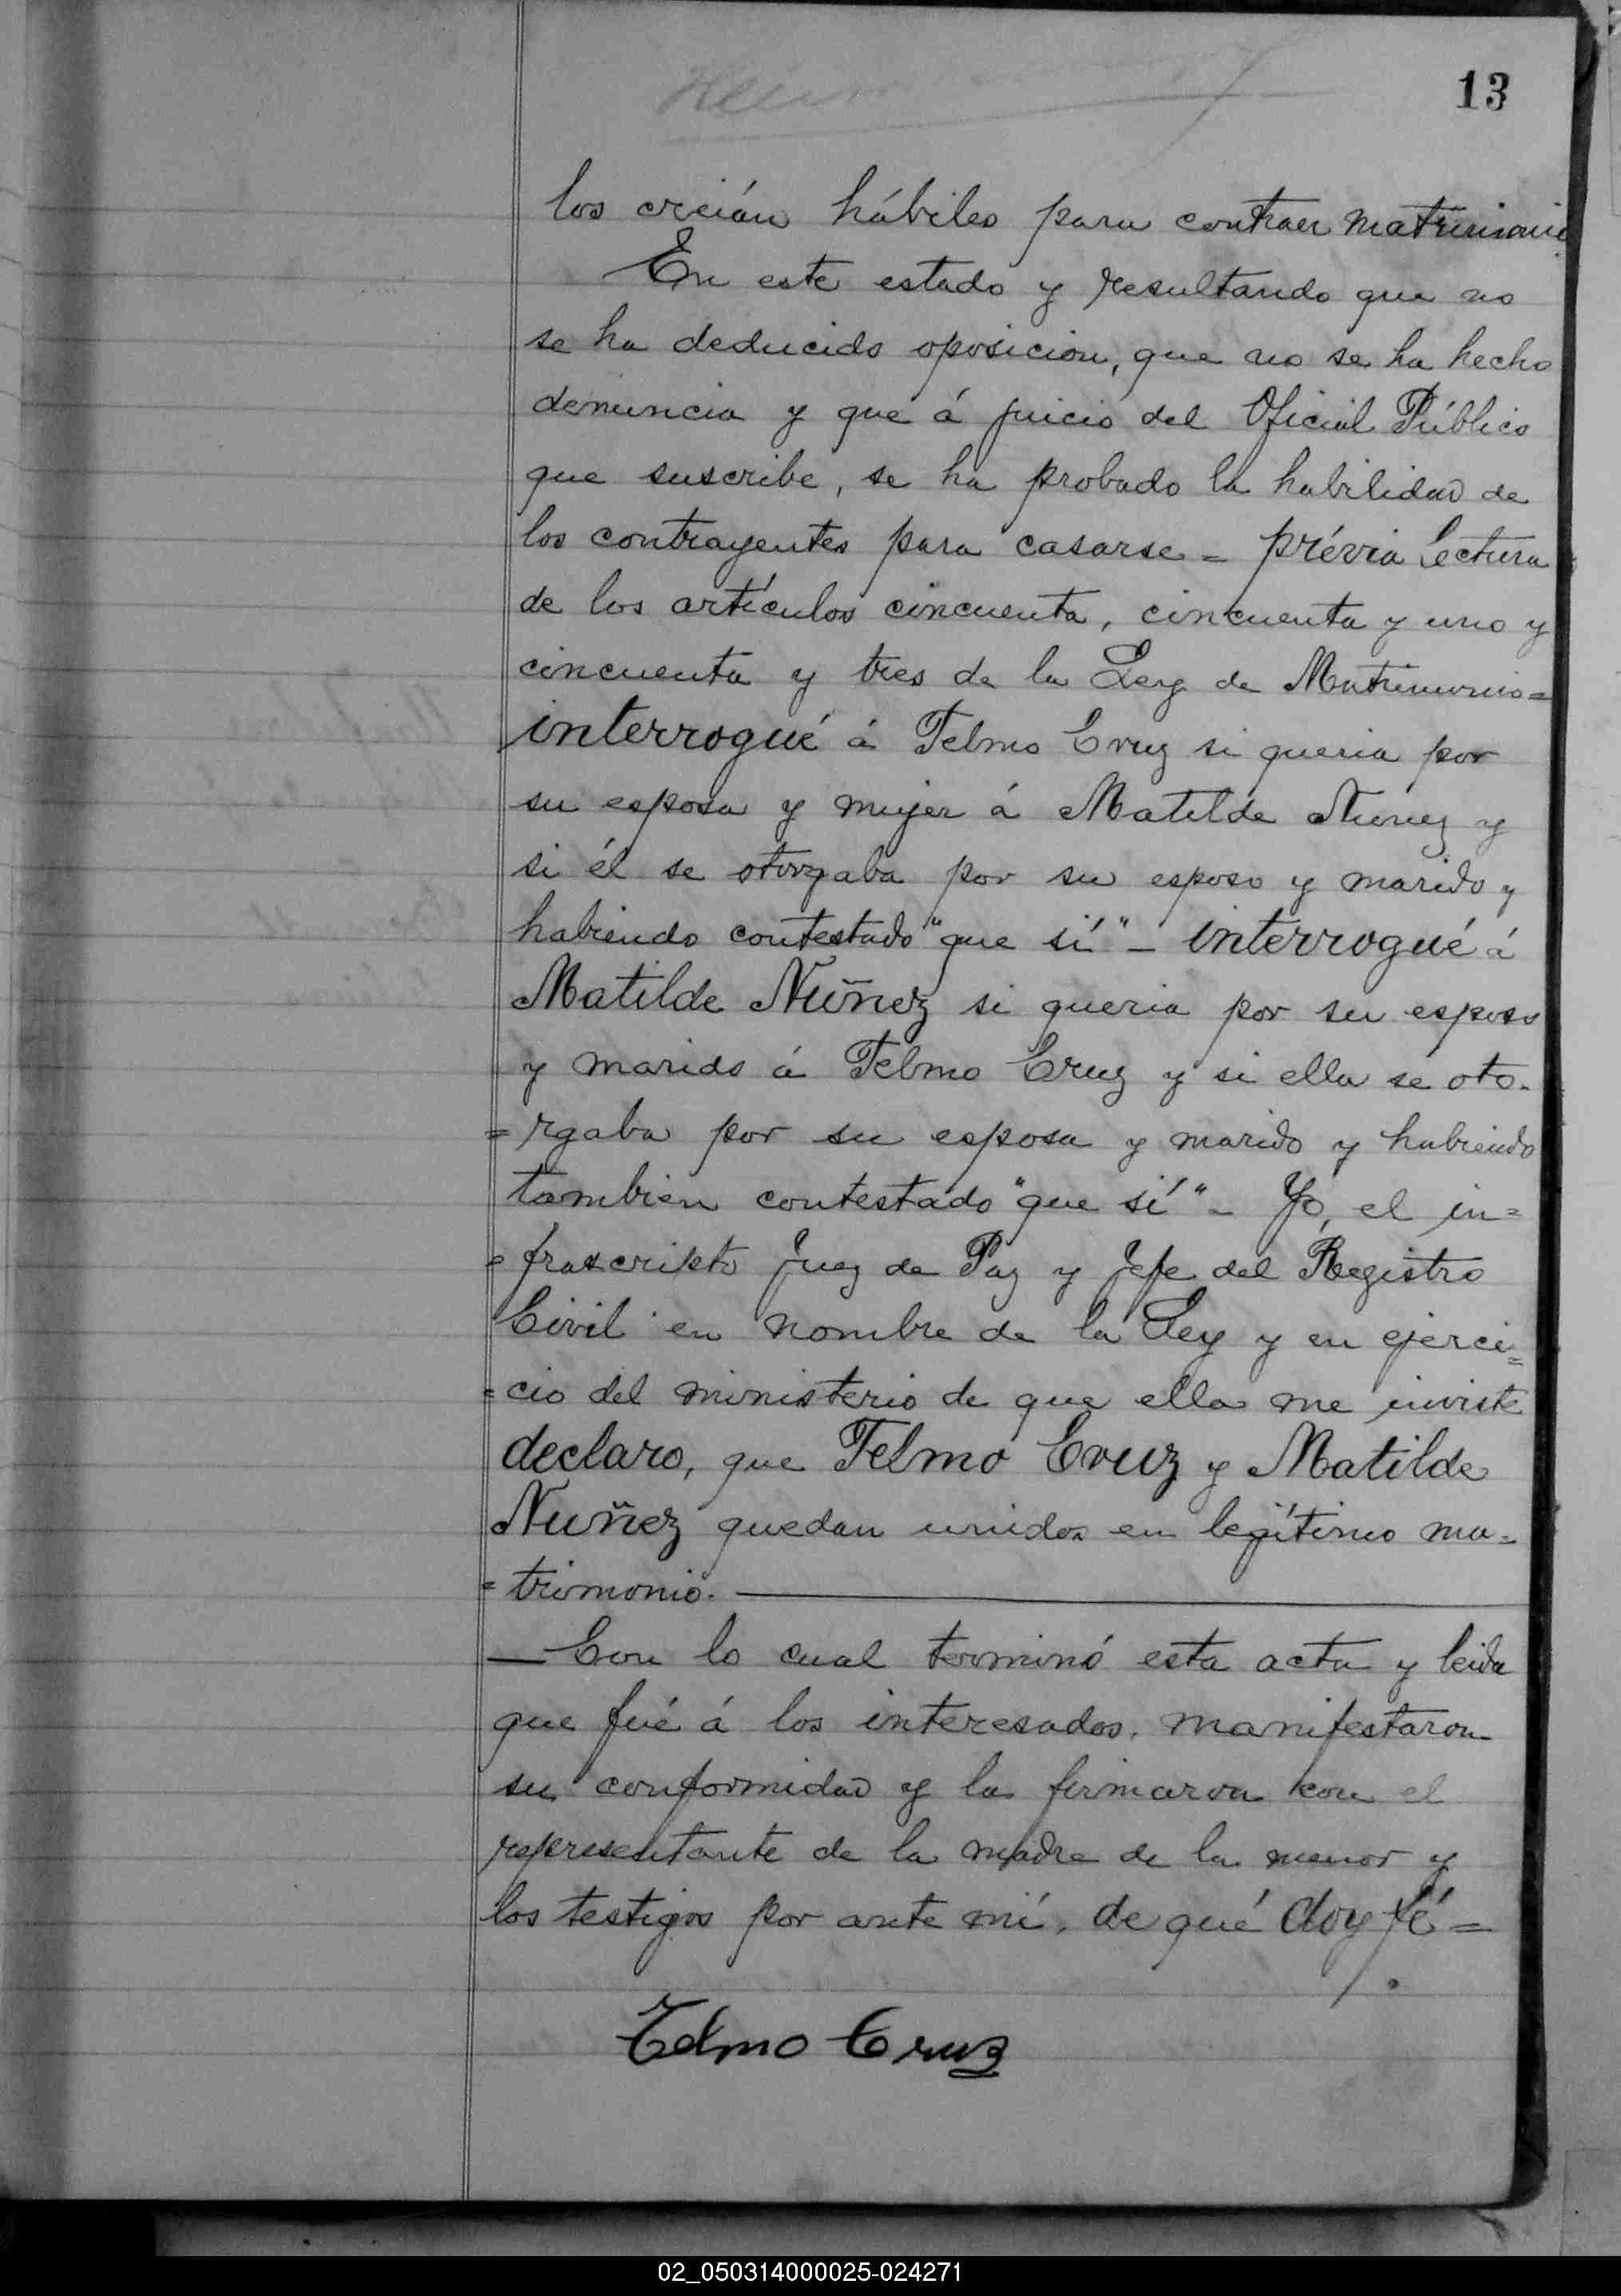 13
los creián hábiles para contraer matrimonio
En este estado y resultando que no
se ha deducido oposicion, que no se ha hecho
denuncia y que á juicio del Oficial Público
que suscribe, se ha probado la habilidad de
los contrayentes para casarse = prévia lectura
de los artículos cincuenta, cincuenta y uno y
cincuenta y tres de la Ley de Matrimonio=
interrogué á Telmo Cruz si queria por
su esposa y mujer á Matilde Nuñez y
si él se otorgaba por su esposo y marido y
habiendo contestado "que sí" - interrogué á
Matilde Nuñez si queria por su esposo
y marido á Telmo Cruz y si ella se oto-
=rgaba por su esposa y marido y habiendo
tambien contestado "que sí" - Yo, el in=
=frascripto Juez de Paz y Jefe del Registro
Civil en nombre de la Ley y en ejerci=
=cio del ministerio de que ella me inviste
declaro, que Telmo Cruz y Matilde
Nuñez quedan unidos en legítimo ma=
=trimonio.
— Con lo cual terminó esta acta y leida
que fué á los interesados, manifestaron
su conformidad y la firmaron con el
representante de la madre de la menor y
los testigos por ante mí, de qué doy fé =
Telmo Cruz
02_050314000025-024271